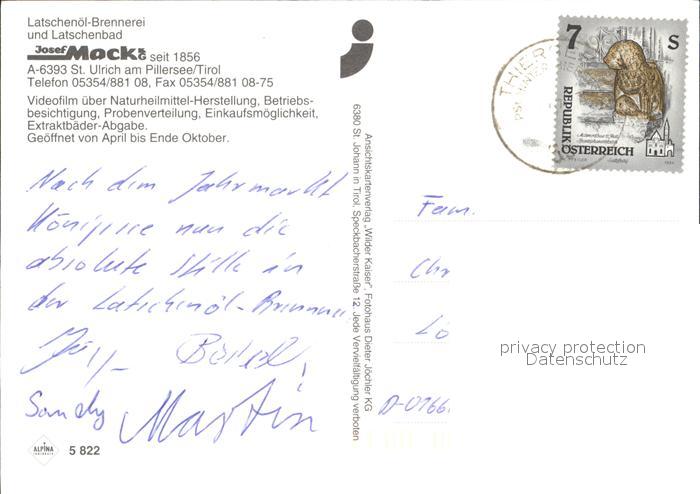 Latschenöl-Brennerei
und Latschenbad
Josef Mack KG seit 1856
A-6393 St. Ulrich am Pillersee/Tirol
Telefon 05354/881 08, Fax 05354/881 08-75
Videofilm über Naturheilmittel-Herstellung, Betriebs-
besichtigung, Probenverteilung, Einkaufsmöglichkeit,
Extraktbäder-Abgabe.
Geöffnet von April bis Ende Oktober.
Nach dem Jahrmarkt
nun die
absolute Stille in
der Latschenöl-Brennerei
Sandy Martin
ALPINA
5 822
Ansichtskartenverlag „Wilder Kaiser", Fotohaus Dieter Jöchler KG
6380 St. Johann in Tirol, Speckbacherstraße 12. Jede Vervielfältigung verboten
THIERSEE
7 S
REPUBLIK
ÖSTERREICH
Fam.
Chr
Lö
D-0166
privacy protection
Datenschutz